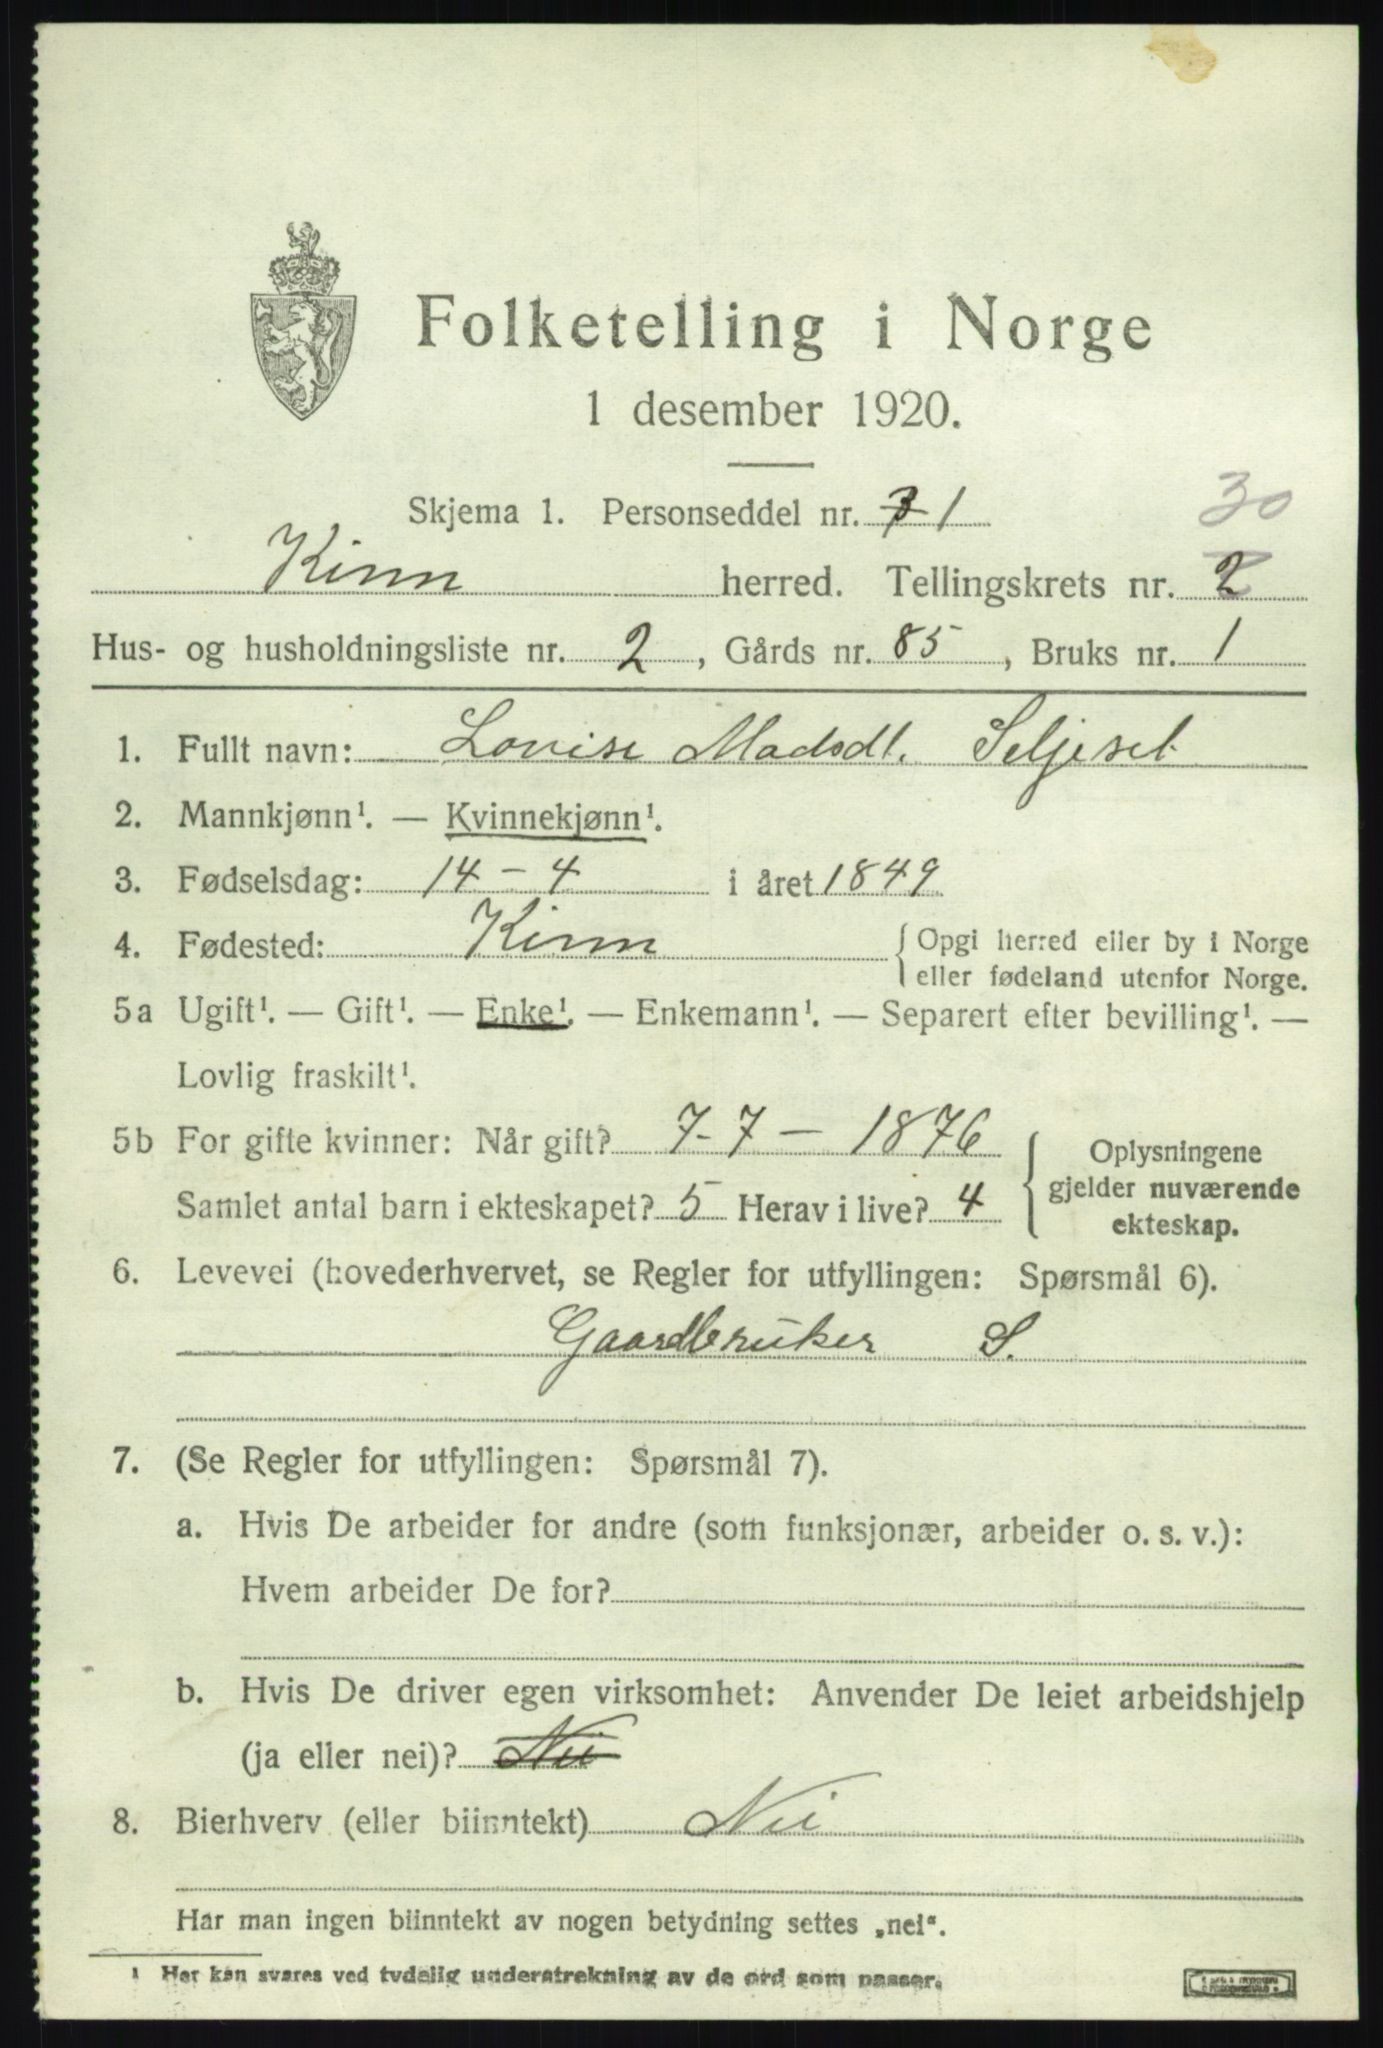 Folketelling i Norge
1 desember 1920.
Skjema 1. Personseddel nr. 1 30
Kinn herred. Tellingskrets nr. 2
Hus- og husholdningsliste nr. 2, Gårds nr. 85, Bruks nr. 1
1. Fullt navn: Lovise Madsdt. Seljeset
2. Mannkjønn¹. — Kvinnekjønn¹.
3. Fødselsdag: 14 - 4 i året 1849
4. Fødested: Kinn { Opgi herred eller by i Norge
eller fødeland utenfor Norge.
5a Ugift¹. — Gift¹. — Enke¹. — Enkemann¹. — Separert efter bevilling¹. —
Lovlig fraskilt¹.
5b For gifte kvinner: Når gift? 7-7 - 1876 { Oplysningene
gjelder nuværende
Samlet antal barn i ekteskapet? 5 Herav i live? 4
ekteskap.
6. Levevei (hovederhvervet, se Regler for utfyllingen: Spørsmål 6).
Gaardbruker S.
7. (Se Regler for utfyllingen: Spørsmål 7).
a. Hvis De arbeider for andre (som funksjonær, arbeider o. s. v.):
Hvem arbeider De for?
b. Hvis De driver egen virksomhet: Anvender De leiet arbeidshjelp
(ja eller nei)? Nei
8. Bierhverv (eller biinntekt) Nei
Har man ingen biinntekt av nogen betydning settes „nei“.
¹ Her kan svares ved tydelig understrekning av de ord som passer.